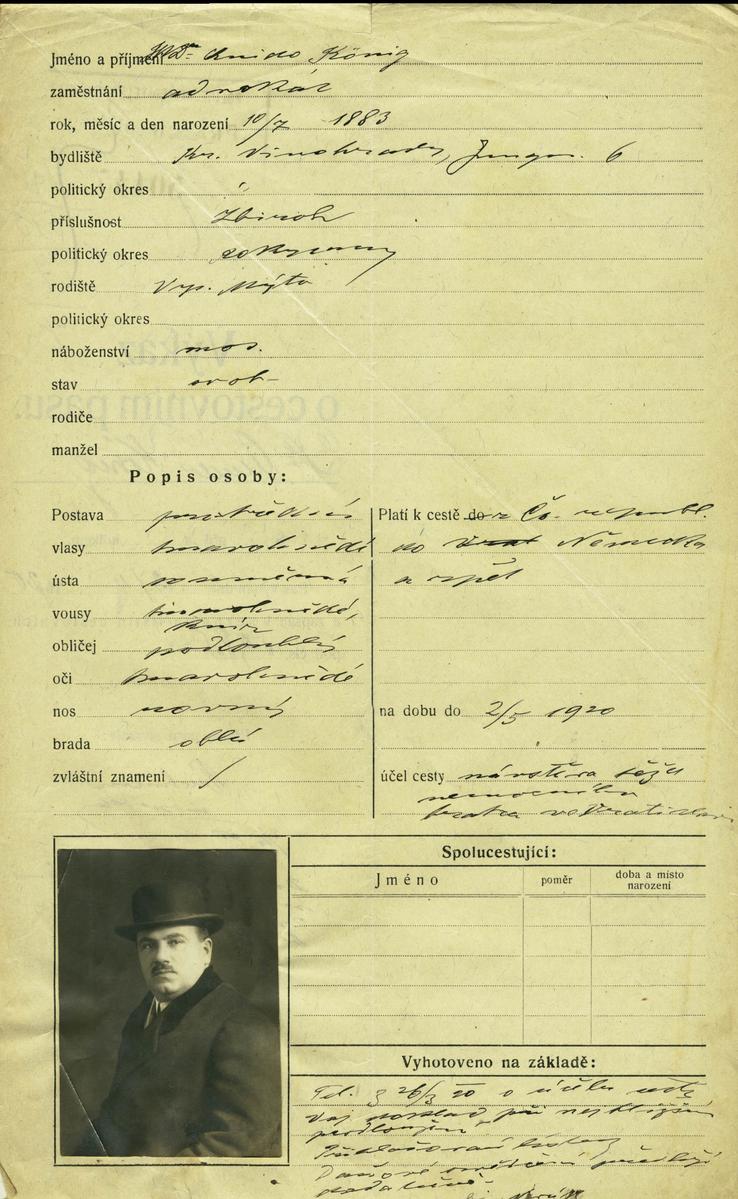 Jméno a příjmení JUDr König
zaměstnání advokát
rok, měsíc a den narození 10/7 1883
bydliště Kr. Vinohrady, 6
politický okres "
příslušnost Zbiroh
politický okres Rokycany
rodiště Vys. Mýto
politický okres
náboženství mos.
stav svob-
rodiče
manžel
Popis osoby:
Postava prostřední
vlasy tmavohnědé
ústa souměrná
vousy tmavohnědé,
knír
obličej podlouhlý
oči tmavohnědé
nos rovný
brada oblá
zvláštní znamení /
Platí k cestě do z Čs. republ.
do Německa
a zpět
na dobu do 2/5 1920
účel cesty návštěva těžce
nemocného
bratra ve Vratislavi
Spolucestující:
Jméno poměr doba a místo
narození
Vyhotoveno na základě:
26/3 20 o účelu cesty
doklad při nejbližším
prodloužení
předloží
dodatečně